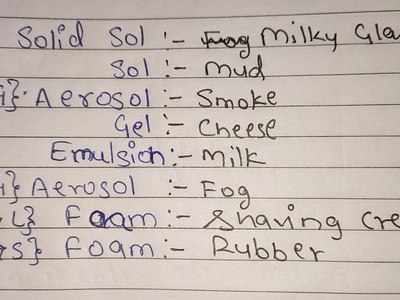 Solid Sol :- Milky Gla
Sol :- Mud
}. Aerosol :- Smoke
Gel :- Cheese
Emulsion :- Milk
} Aerosol :- Fog
L} Foam :- Shaving Cre
S} Foam :- Rubber